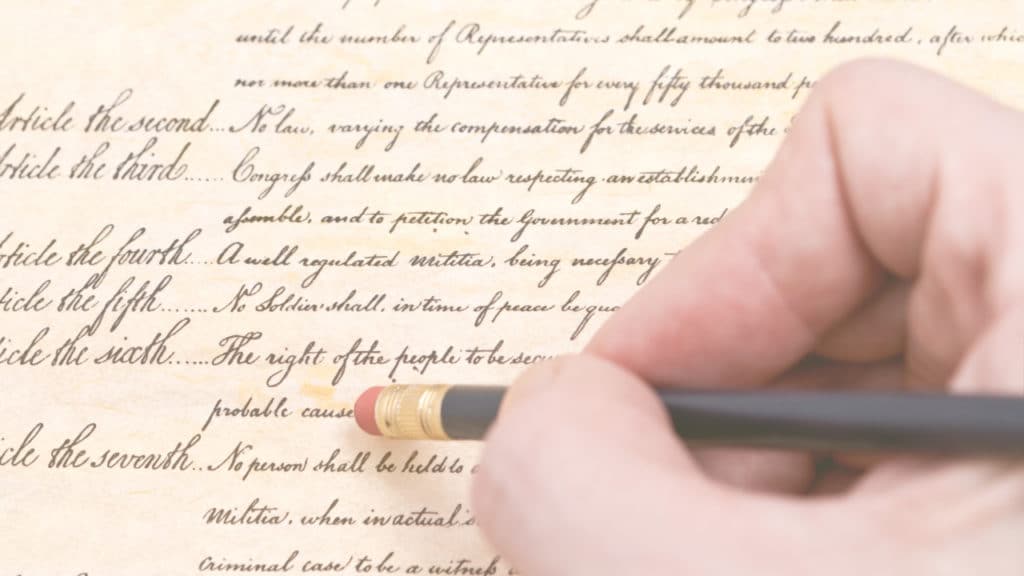 until the number of Representatives shall amount to two hundred, after which
nor more than one Representative for every fifty thousand
Article the second... No law, varying the compensation for the services of the
Article the third...... Congress shall make no law respecting an establishment
assemble, and to petition the Government for a red
Article the fourth.... A well regulated militia, being necessary
ticle the fifth....... No Soldier shall, in time of peace be qua
icle the sixth...... The right of the people to be secu
probable cause
cle the seventh.. No person shall be held to
Militia, when in actual s
criminal case to be a witness